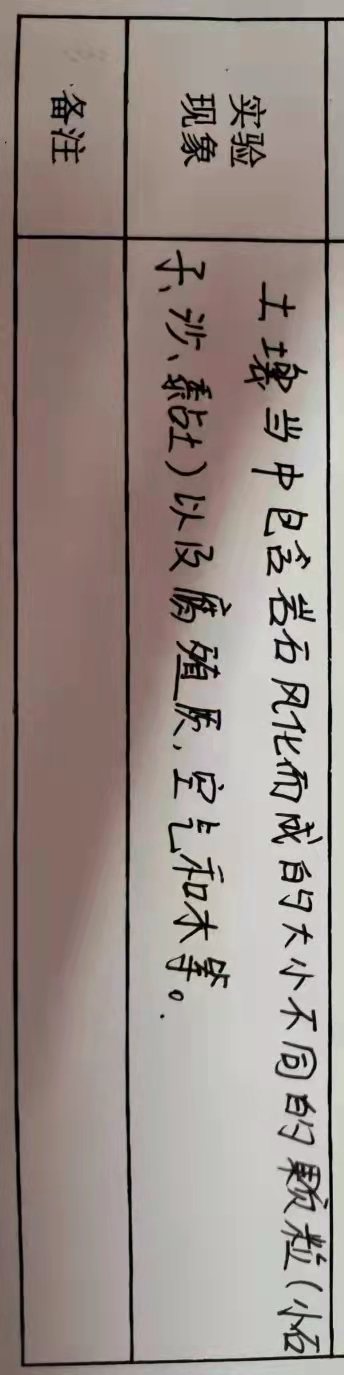 实验
现象
土壤当中包含岩石风化而成的大小不同的颗粒(小石
子、沙、黏土)以及腐殖质,空气和水等。
备注